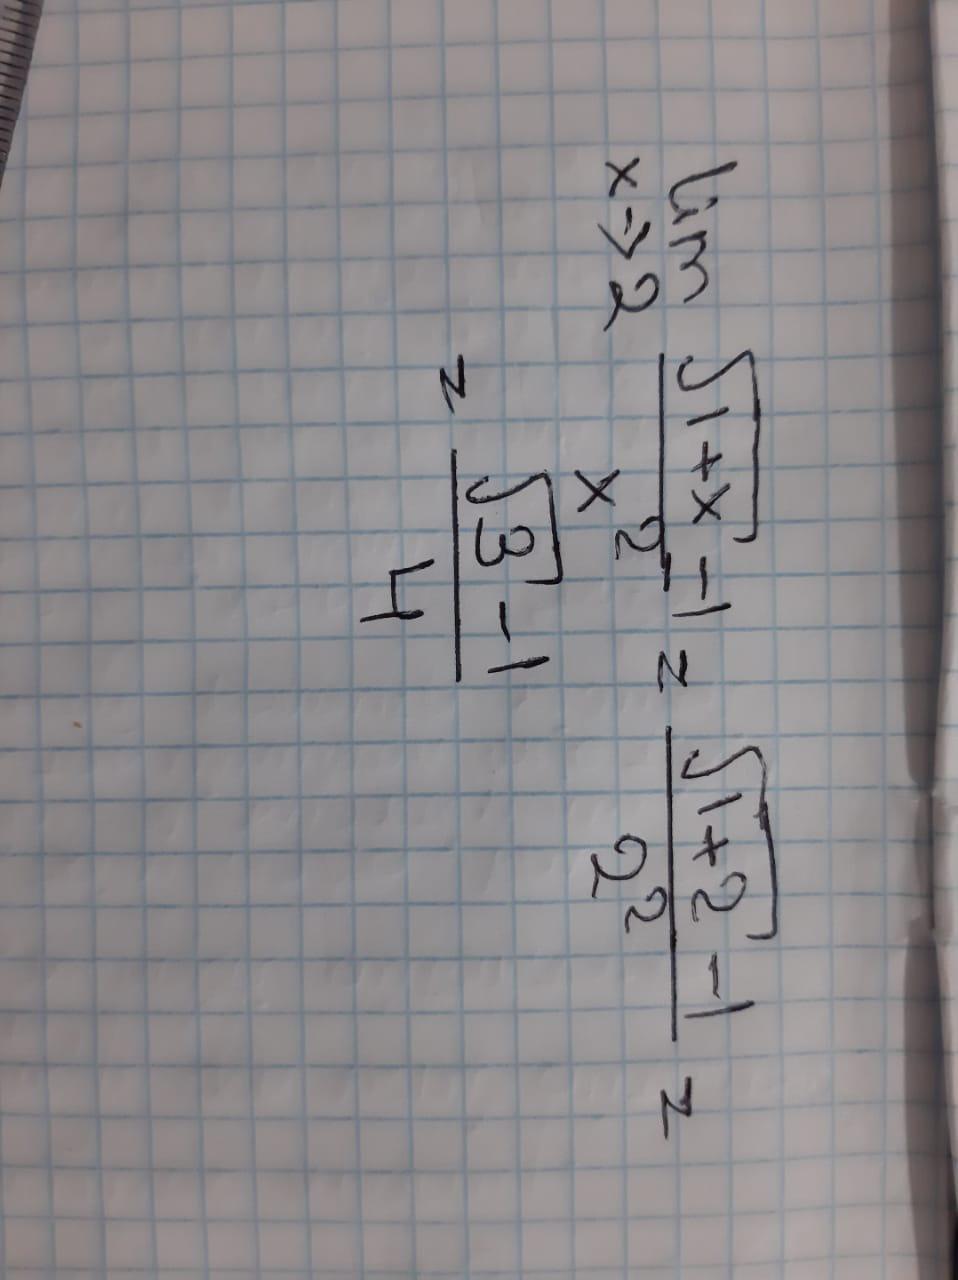 lim x→2 √(1+x) -1 / x² = √(1+2) -1 / 2² =
= √3 -1 / 4